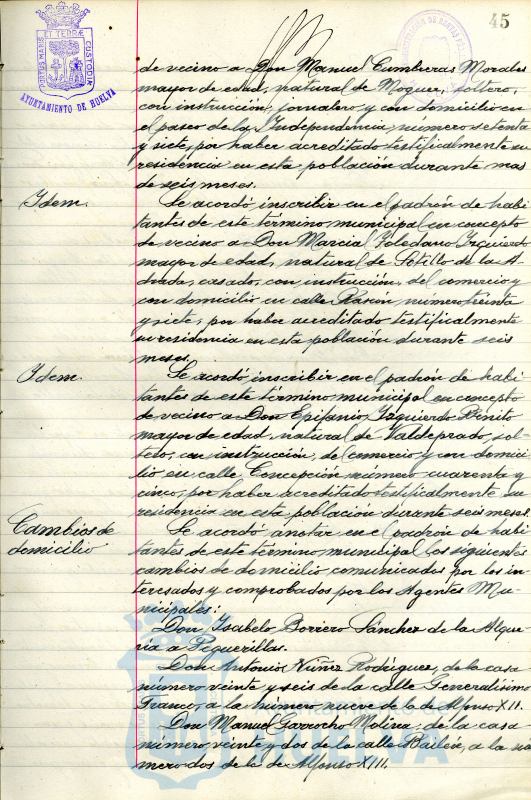 45
PORTUS MARIS ET TERRÆ CUSTODIA
AYUNTAMIENTO DE HUELVA
de vecino a Don Manuel Cumbreras Morales
mayor de edad, natural de Moguer, soltero,
con instrucción, jornalero y con domicilio en
el paseo de la Independencia, número setenta
y siete, por haber acreditado testificalmente su
residencia en esta población durante mas
de seis meses.
Idem.
Se acordó inscribir en el padrón de habi
tantes de este término municipal en concepto
de vecino a Don Marcial Toledano Izquierdo
mayor de edad, natural de Sotillo de la A
drada, casado, con instrucción, del comercio y
con domicilio en calle Rascón, número treinta
y siete, por haber acreditado testificalmente
su residencia en esta población durante seis
meses.
Idem.
Se acordó inscribir en el padrón de habi
tantes de este término municipal en concepto
de vecino a Don Epifanio Izquierdo Benito
mayor de edad, natural de Valdeprado, sol
tero, con instrucción, del comercio y con domici
lio en calle Concepción número cuarenta y
cinco, por haber acreditado testificalmente su
residencia en esta población durante seis meses.
Cambios de
domicilio
Se acordó anotar en el padrón de habi
tantes de este término municipal los siguientes
cambios de domicilio comunicados por los in
teresados y comprobados por los Agentes Mu-
nicipales:
Don Isabelo Borrero Sánchez de la Alque
ria a Peguerillas.
Don Antonio Núñez Rodríguez, de la casa
número veinte y seis de la calle Generalísimo
Franco, a la número nueve de la de Alfonso XII.
Don Manuel Garrocho Molina, de la casa
número veinte y dos de la calle Bailén, a la nú
mero dos de la de Alfonso XIII.
HUELVA